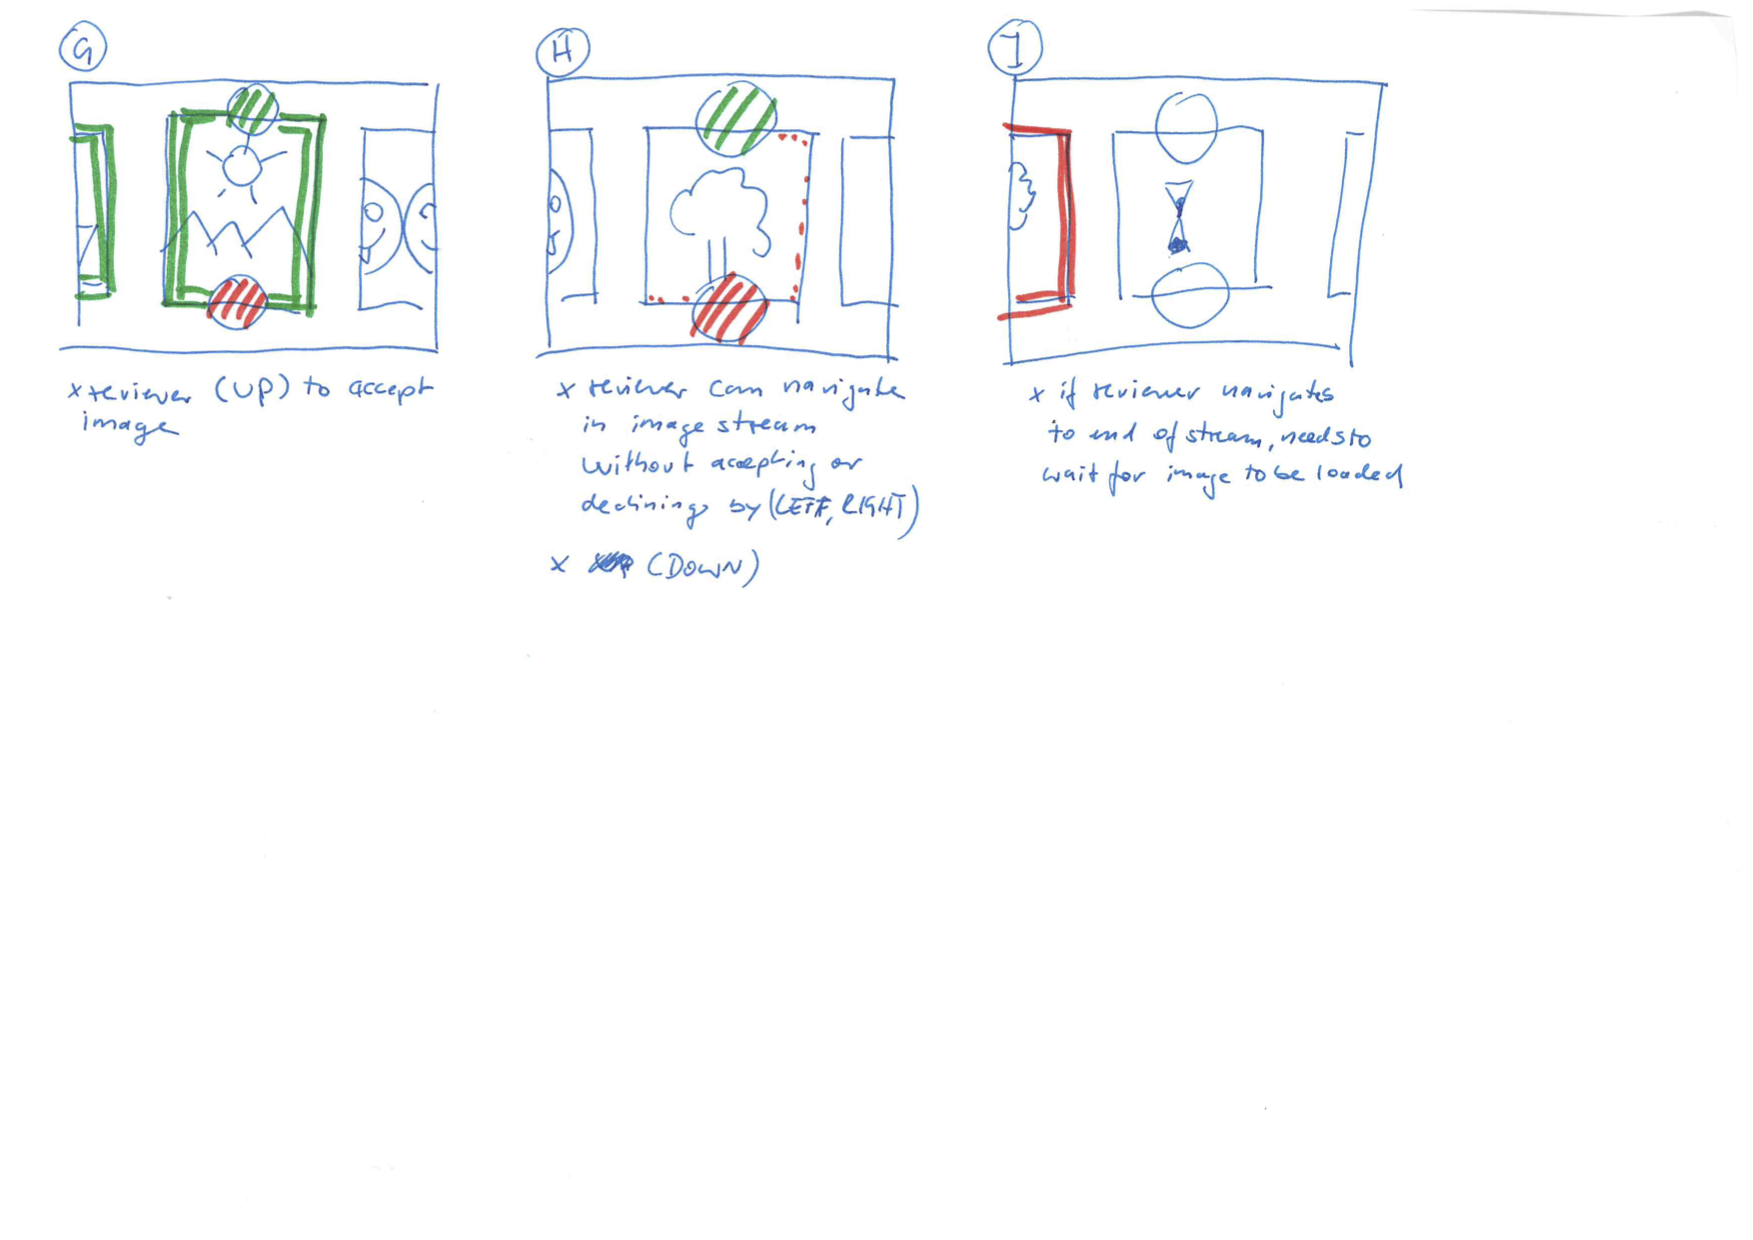 G
x reviewer (UP) to accept
image
H
x reviewer can navigate
in image stream
without accepting or
declining by (LEFT, RIGHT)
x (DOWN)
I
x if reviewer navigates
to end of stream, needs to
wait for image to be loaded